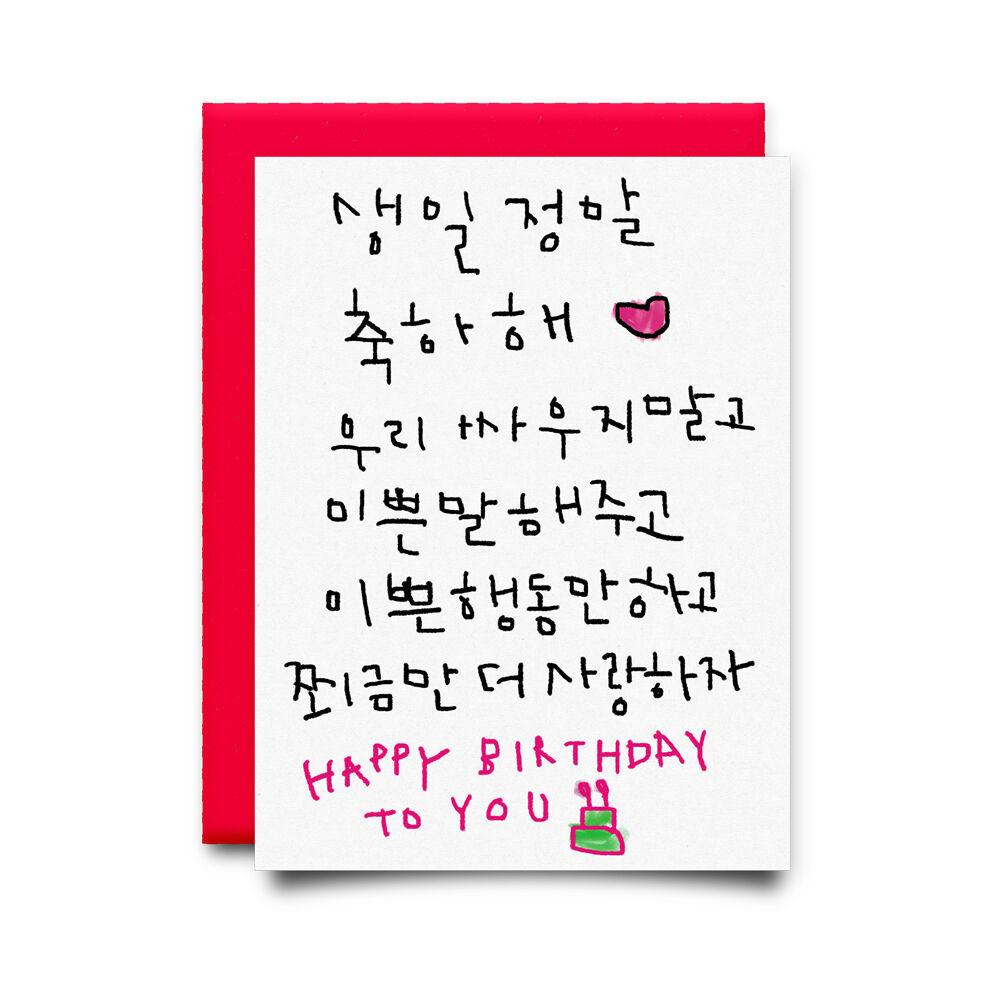 생일 정말
축하해
우리 싸우지말고
이쁜말해주고
이쁜행동만하고
쬐금만 더 사랑하자
HAPPY BIRTHDAY
TO YOU